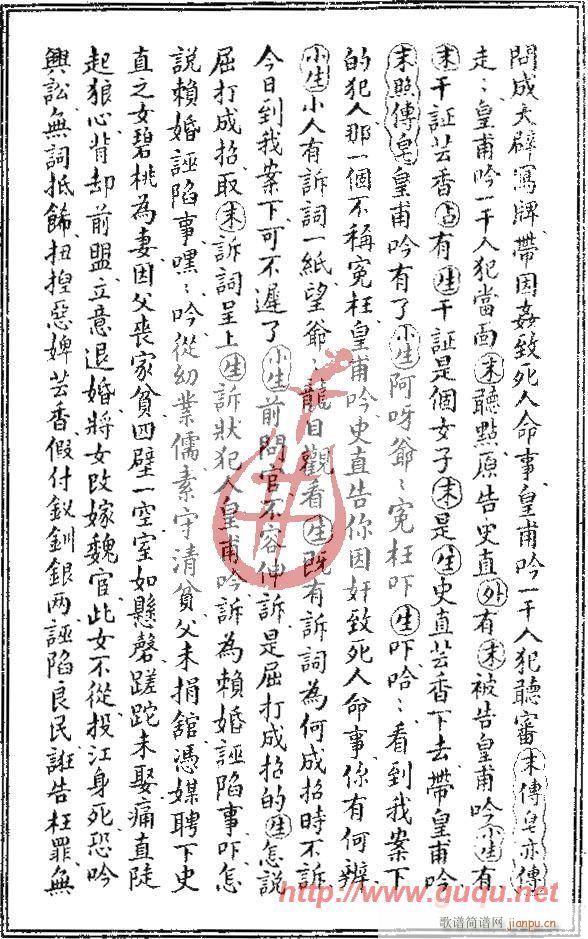 問成大辟寫牌帶因姦致死人命事皇甫吟一干人犯聽審末傳皂亦傳
走〻皇甫吟一干人犯當面末聽點原告史直外有末被告皇甫吟小生有
末干証芸香占有生干証是個女子末是生史直芸香下去帶皇甫吟
末照傳皂皇甫吟有了小生阿呀爺〻冤枉吓生吓哈〻看到我案下
的犯人那一個不稱冤枉皇甫吟史直告你因奸致死人命事你有何辨
小生小人有訴詞一紙望爺〻龍目觀看生既有訴詞為何成招時不訴
今日到我案下可不遲了小生前問官不容伸訴是屈打成招的生怎說
屈打成招取末訴詞呈上生訴狀犯人皇甫吟訴為賴婚誣陷事吓怎
說賴婚誣陷事嘿〻吟從幼業儒素守清貧父未捐舘憑媒聘下史
直之女碧桃為妻因父喪家貧四壁一空室如懸磬蹉跎未娶痛直陡
起狼心背却前盟立意退婚將女改嫁魏官此女不從投江身死恐吟
興訟無詞抵飾扭捏惡婢芸香假付釵釧銀两誣陷良民誑告枉罪無
http://www.guqu.net
歌谱简谱网
jianpu.cn